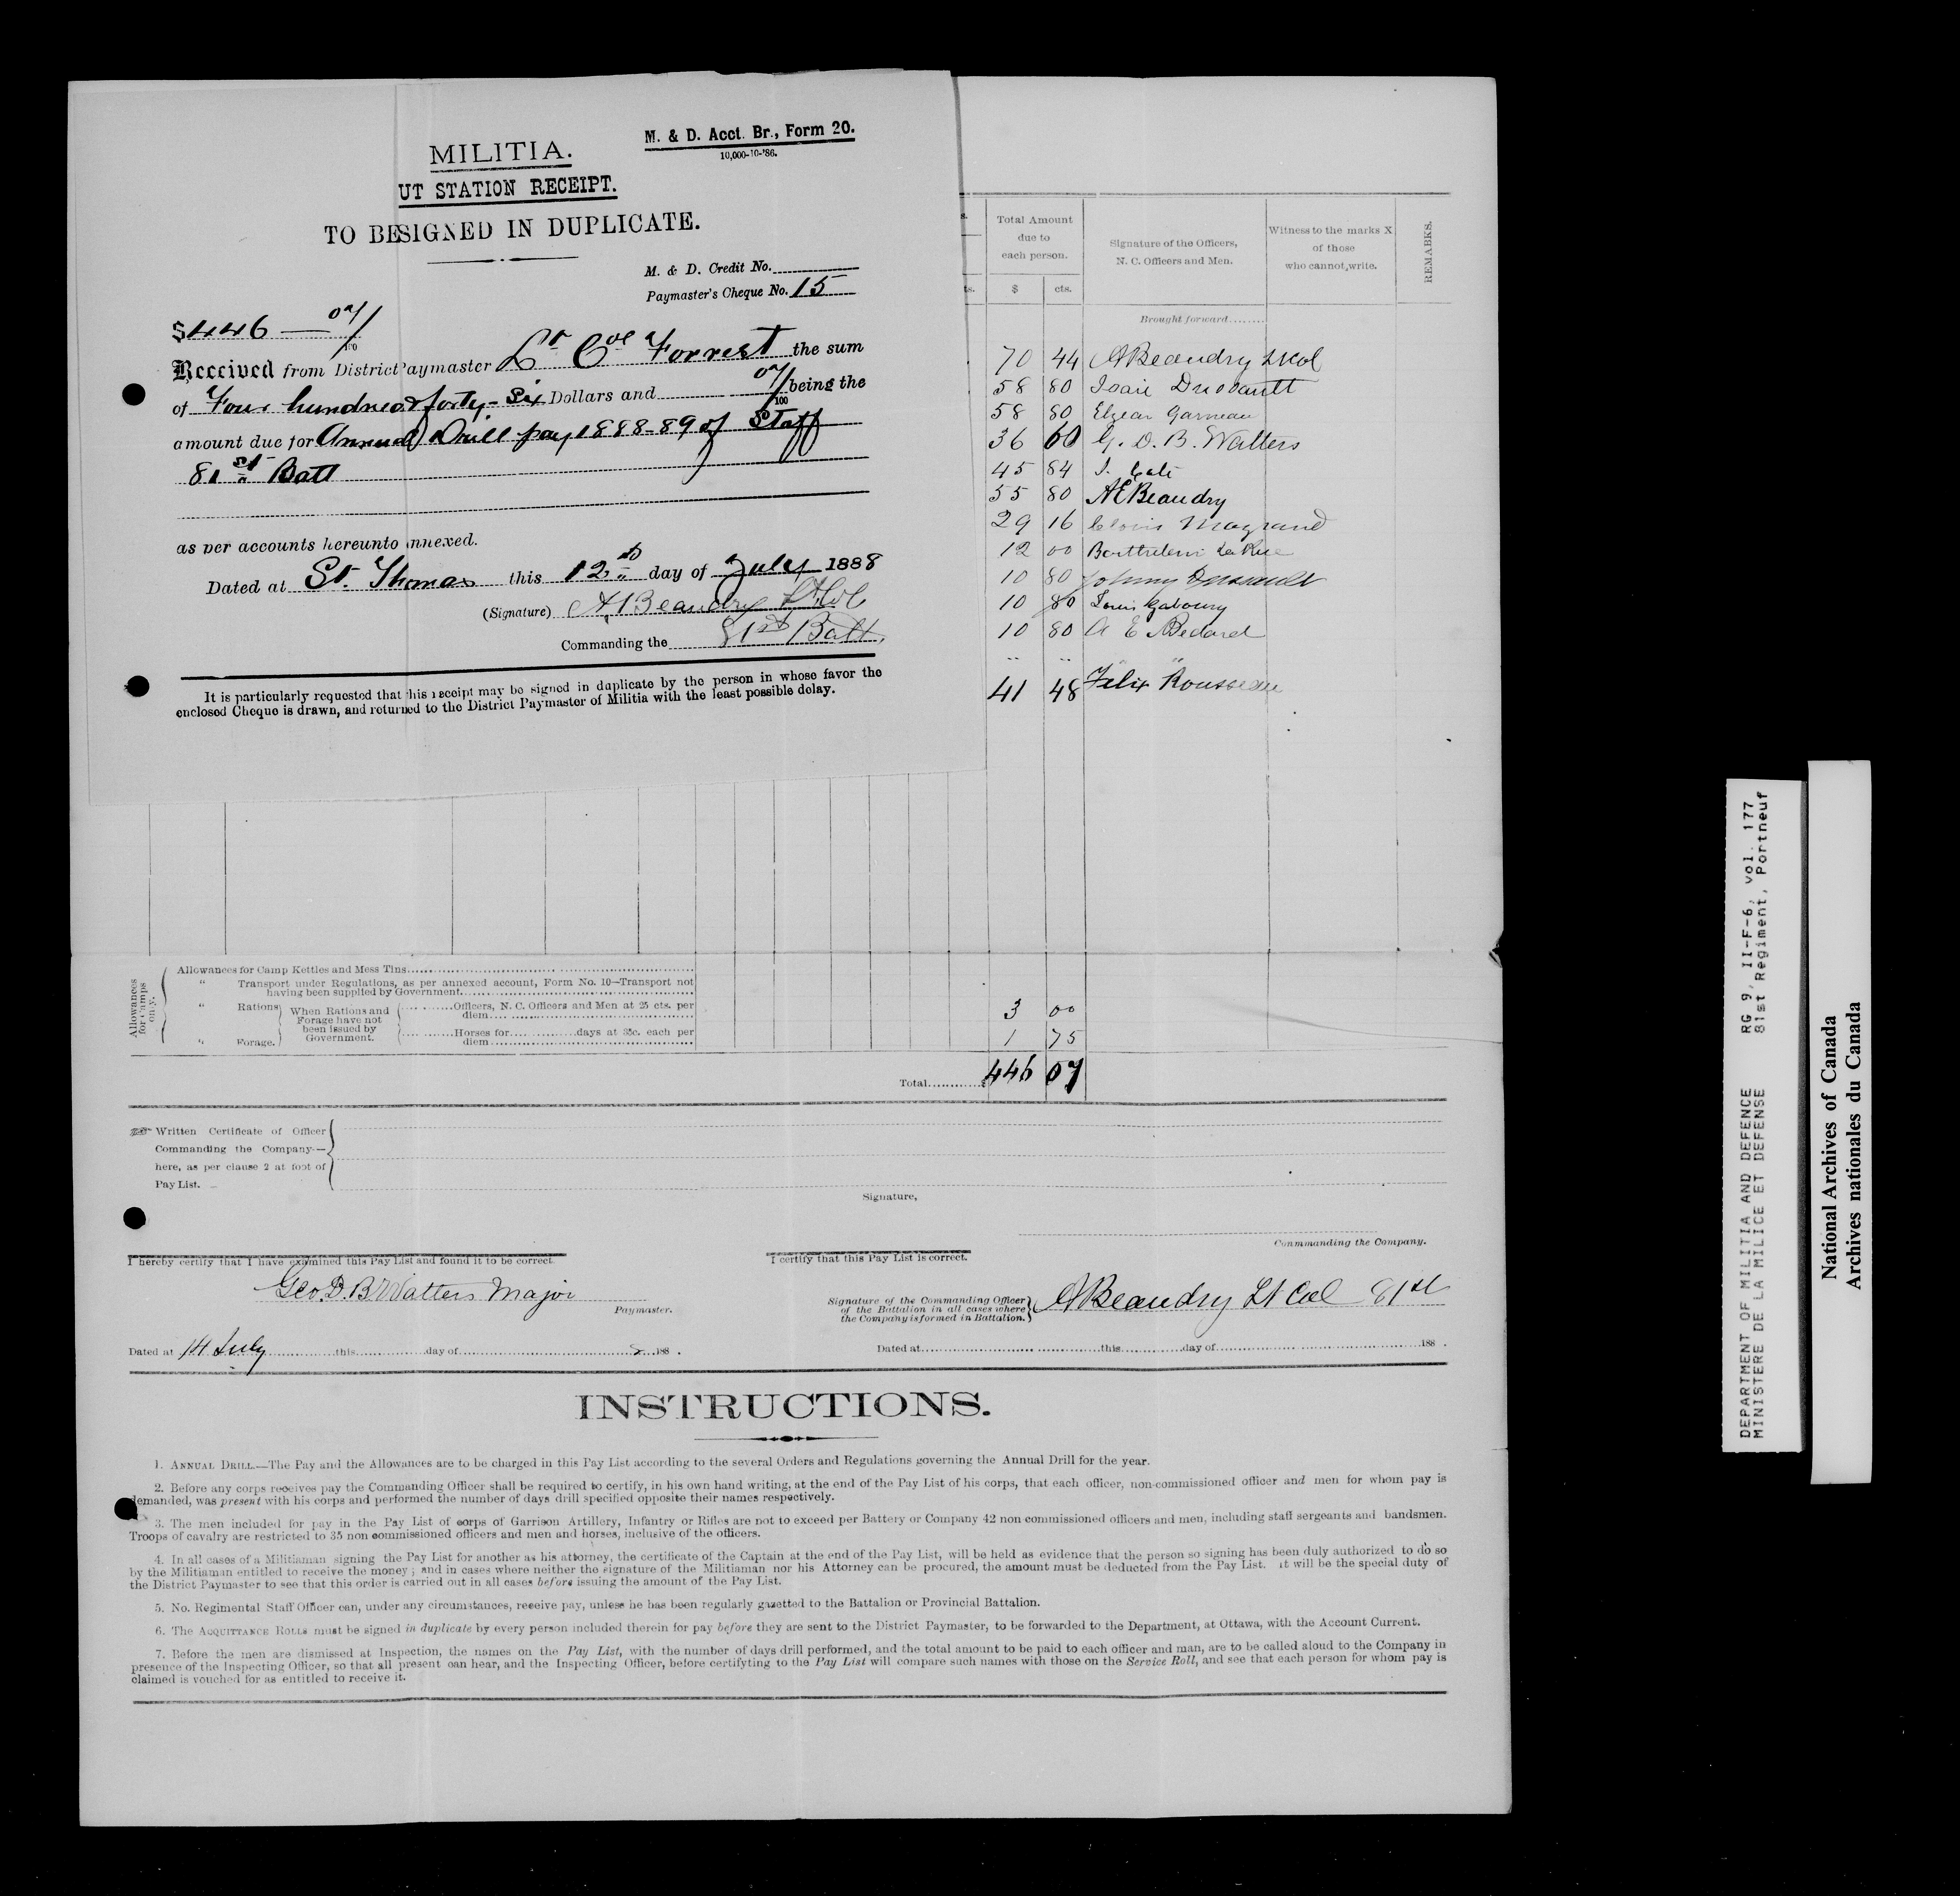 M. & D. Acct. Br., Form 20.
10,000-10-'86.
MILITIA.
UT STATION RECEIPT.
TO BE SIGNED IN DUPLICATE.
M. & D. Credit No.
Paymaster's Cheque No. 15
$446 07/100
Received from District Paymaster Lt Col Forrest the sum
of Four hundred & forty-six Dollars and 07/100 being the
amount due for Annual Drill pay 1888-89 of Staff
81st Batt
as per accounts hereunto annexed.
Dated at St. Thomas this 12th day of July 1888
(Signature) A Beaudry Lt Col
Commanding the 81st Batt.
It is particularly requested that this receipt may be signed in duplicate by the person in whose favor the
enclosed Cheque is drawn, and returned to the District Paymaster of Militia with the least possible delay.
s.
ts.
Total Amount
due to
each person.
$ cts.
Signature of the Officers,
N. C. Officers and Men.
Witness to the marks X
of those
who cannot write.
REMARKS.
Brought forward........
70 44 A Beaudry Lt Col
58 80 Isaie Dussault
58 80 Elzear Garneau
36 60 G. D. B. Watters
45 84 J.
55 80 AE Beaudry
29 16 Clovis Magrand
12 00 Barthelemi LaRue
10 80 Johnny Dussault
10 80 Louis Gaboury
10 80 A E Bedard
" " "
41 48 Felix Rousseau
Allowances for Camps only.
Allowances for Camp Kettles and Mess Tins
" Transport under Regulations, as per annexed account, Form No. 10—Transport not
having been supplied by Government
" Rations
" Forage.
When Rations and
Forage have not
been issued by
Government.
Officers, N. C. Officers and Men at 25 cts. per
diem
3 00
Horses for days at 35c. each per
diem
1 75
Total $446 07
Written Certificate of Officer
Commanding the Company—
here, as per clause 2 at foot of
Pay List.
Signature,
Conmmanding the Company.
I hereby certify that I have examined this Pay List and found it to be correct.
Geo. D. B Watters Major
Paymaster.
Dated at 14 July this day of 8 188 .
I certify that this Pay List is correct.
Signature of the Commanding Officer
of the Battalion in all cases where
the Company is formed in Battalion.
A Beaudry Lt Col 81st
Dated at this day of 188 .
INSTRUCTIONS.
1. ANNUAL DRILL.—The Pay and the Allowances are to be charged in this Pay List according to the several Orders and Regulations governing the Annual Drill for the year.
2. Before any corps receives pay the Commanding Officer shall be required to certify, in his own hand writing, at the end of the Pay List of his corps, that each officer, non-commissioned officer and men for whom pay is
demanded, was present with his corps and performed the number of days drill specified opposite their names respectively.
3. The men included for pay in the Pay List of corps of Garrison Artillery, Infantry or Rifles are not to exceed per Battery or Company 42 non-commissioned officers and men, including staff sergeants and bandsmen.
Troops of cavalry are restricted to 35 non commissioned officers and men and horses, inclusive of the officers.
4. In all cases of a Militiaman signing the Pay List for another as his attorney, the certificate of the Captain at the end of the Pay List, will be held as evidence that the person so signing has been duly authorized to do so
by the Militiaman entitled to receive the money; and in cases where neither the signature of the Militiaman nor his Attorney can be procured, the amount must be deducted from the Pay List. it will be the special duty of
the District Paymaster to see that this order is carried out in all cases before issuing the amount of the Pay List.
5. No. Regimental Staff Officer can, under any circumstances, receive pay, unless he has been regularly gazetted to the Battalion or Provincial Battalion.
6. The ACQUITTANCE ROLLS must be signed in duplicate by every person included therein for pay before they are sent to the District Paymaster, to be forwarded to the Department, at Ottawa, with the Account Current.
7. Before the men are dismissed at Inspection, the names on the Pay List, with the number of days drill performed, and the total amount to be paid to each officer and man, are to be called aloud to the Company in
presence of the Inspecting Officer, so that all present can hear, and the Inspecting Officer, before certifyting to the Pay List will compare such names with those on the Service Roll, and see that each person for whom pay is
claimed is vouched for as entitled to receive it.
DEPARTMENT OF MILITIA AND DEFENCE RG 9, II-F-6, vol. 177
MINISTERE DE LA MILICE ET DEFENSE 81st Regiment, Portneuf
National Archives of Canada
Archives nationales du Canada